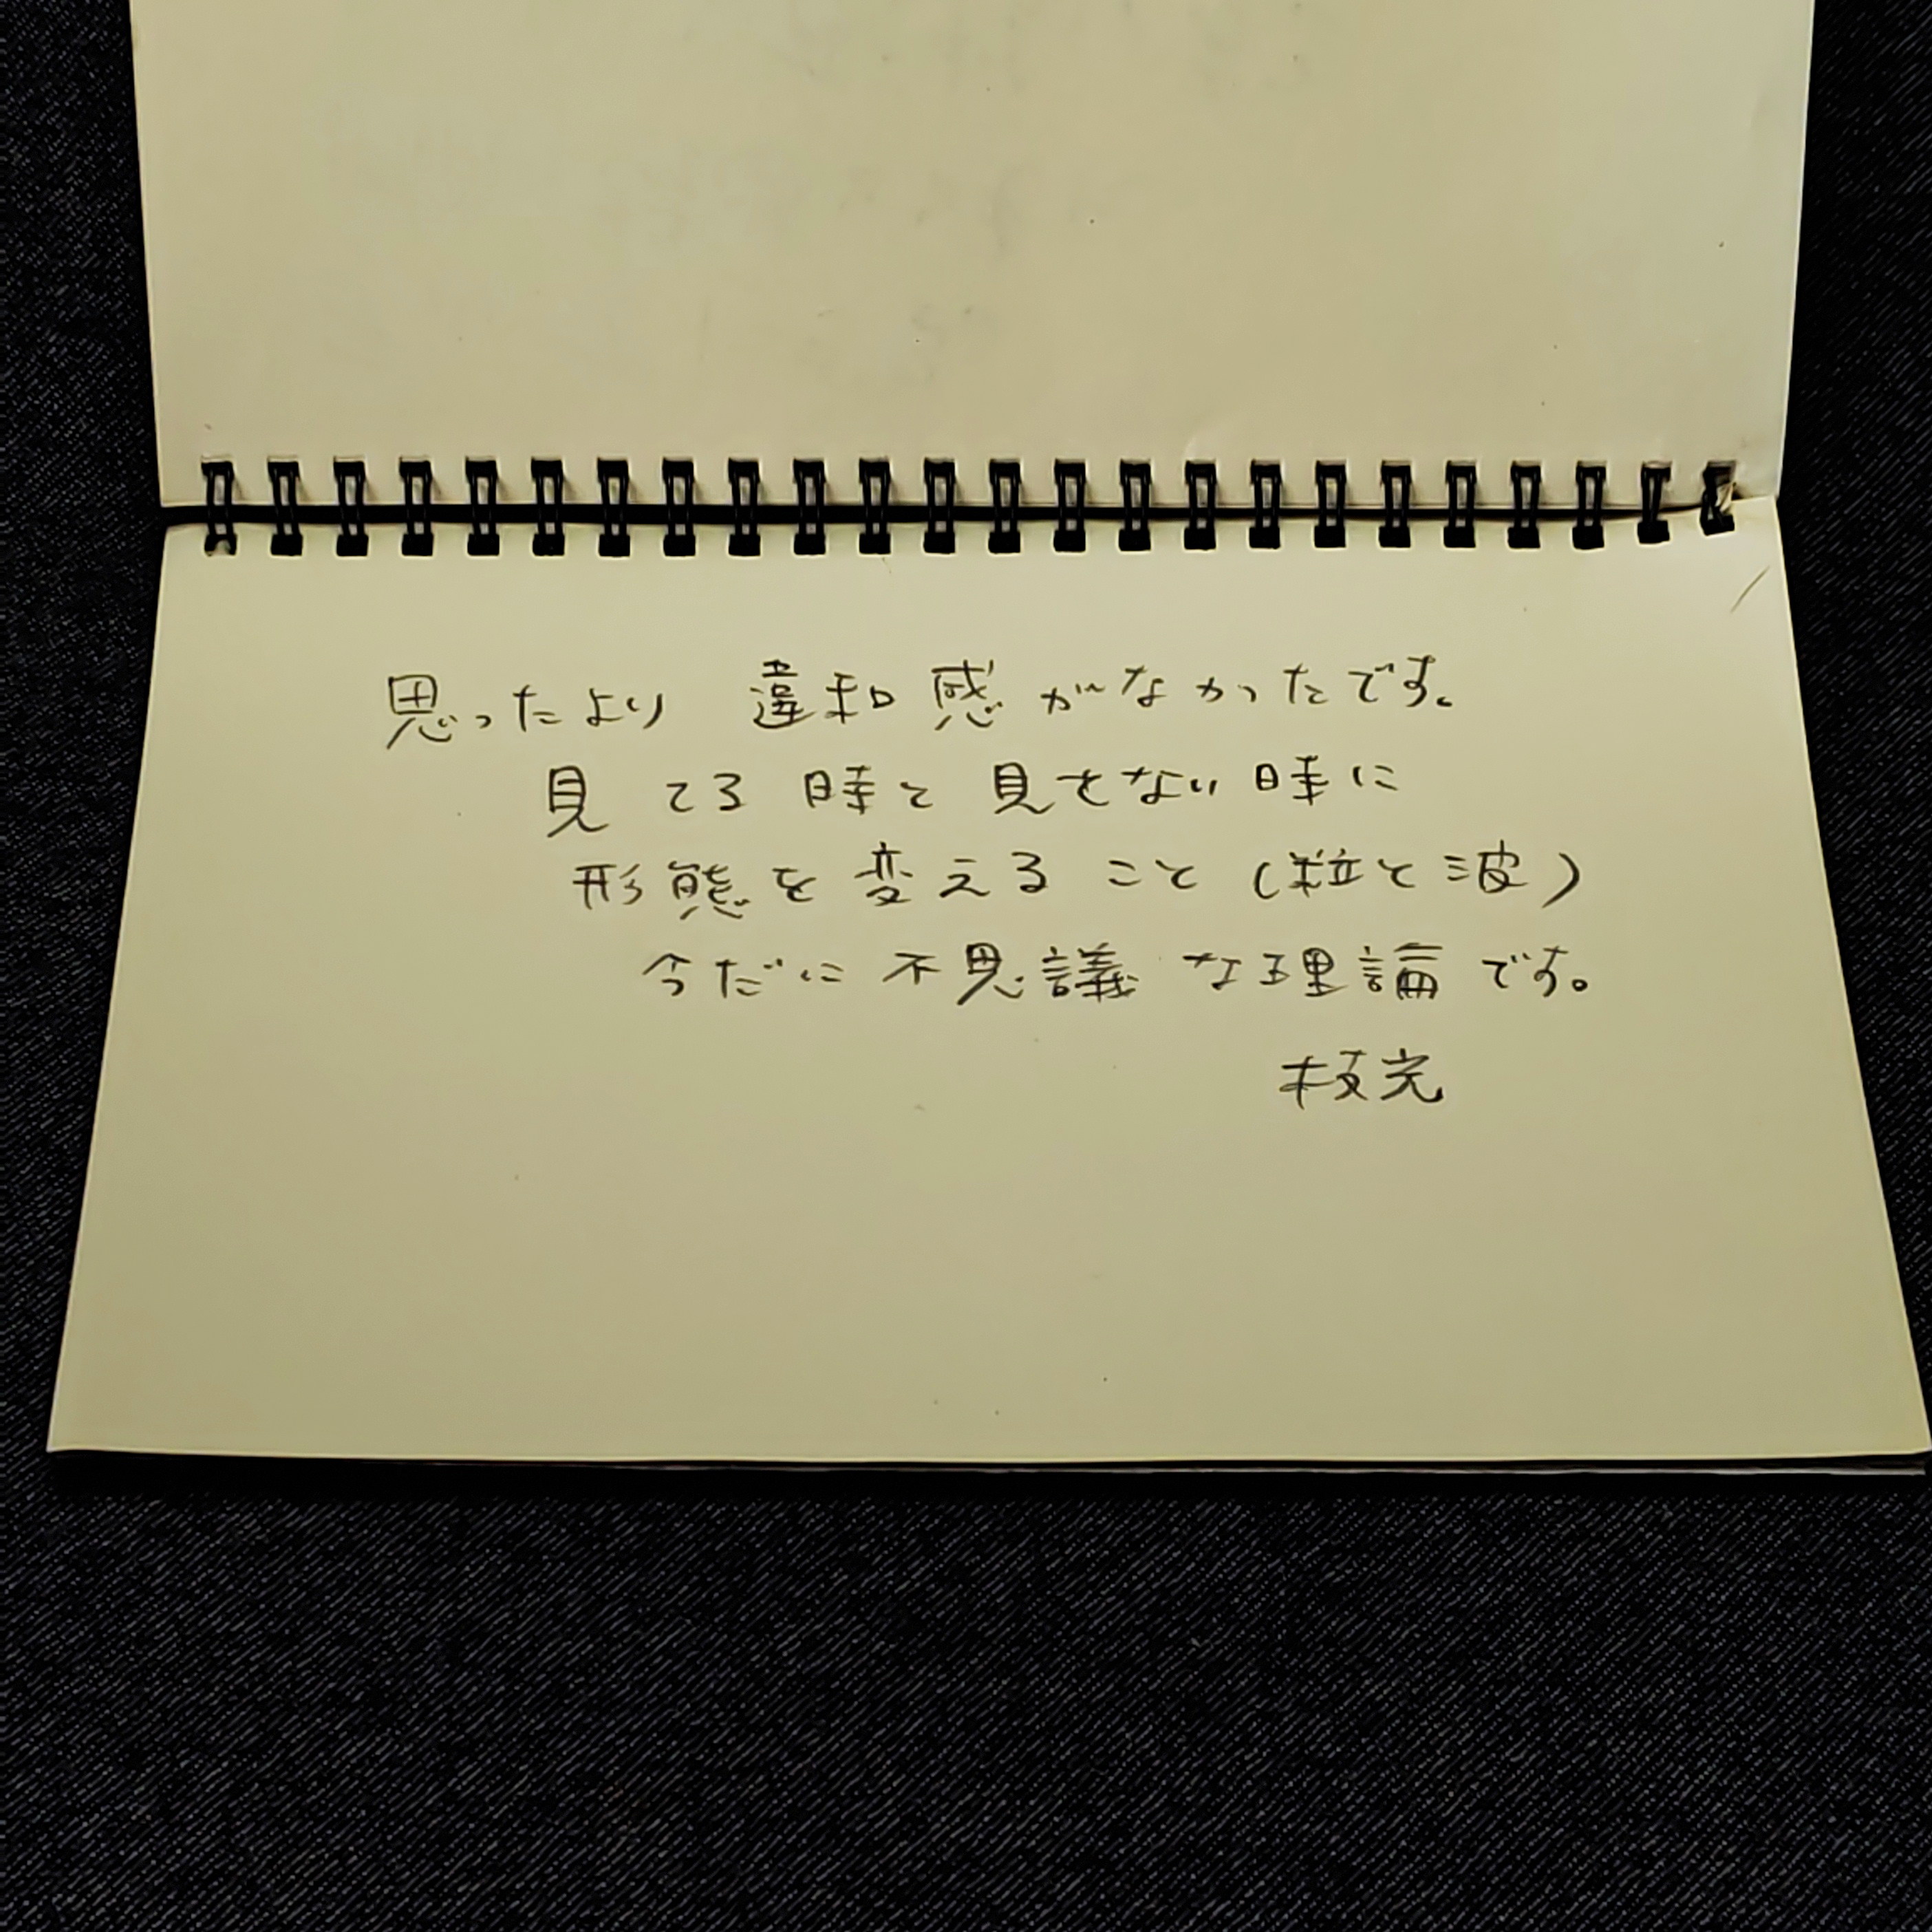 思ったより 違和感がなかったです。
見てる時と見せない時に
形態を変えること(粒と波)
今だに不思議な理論です。
枝完